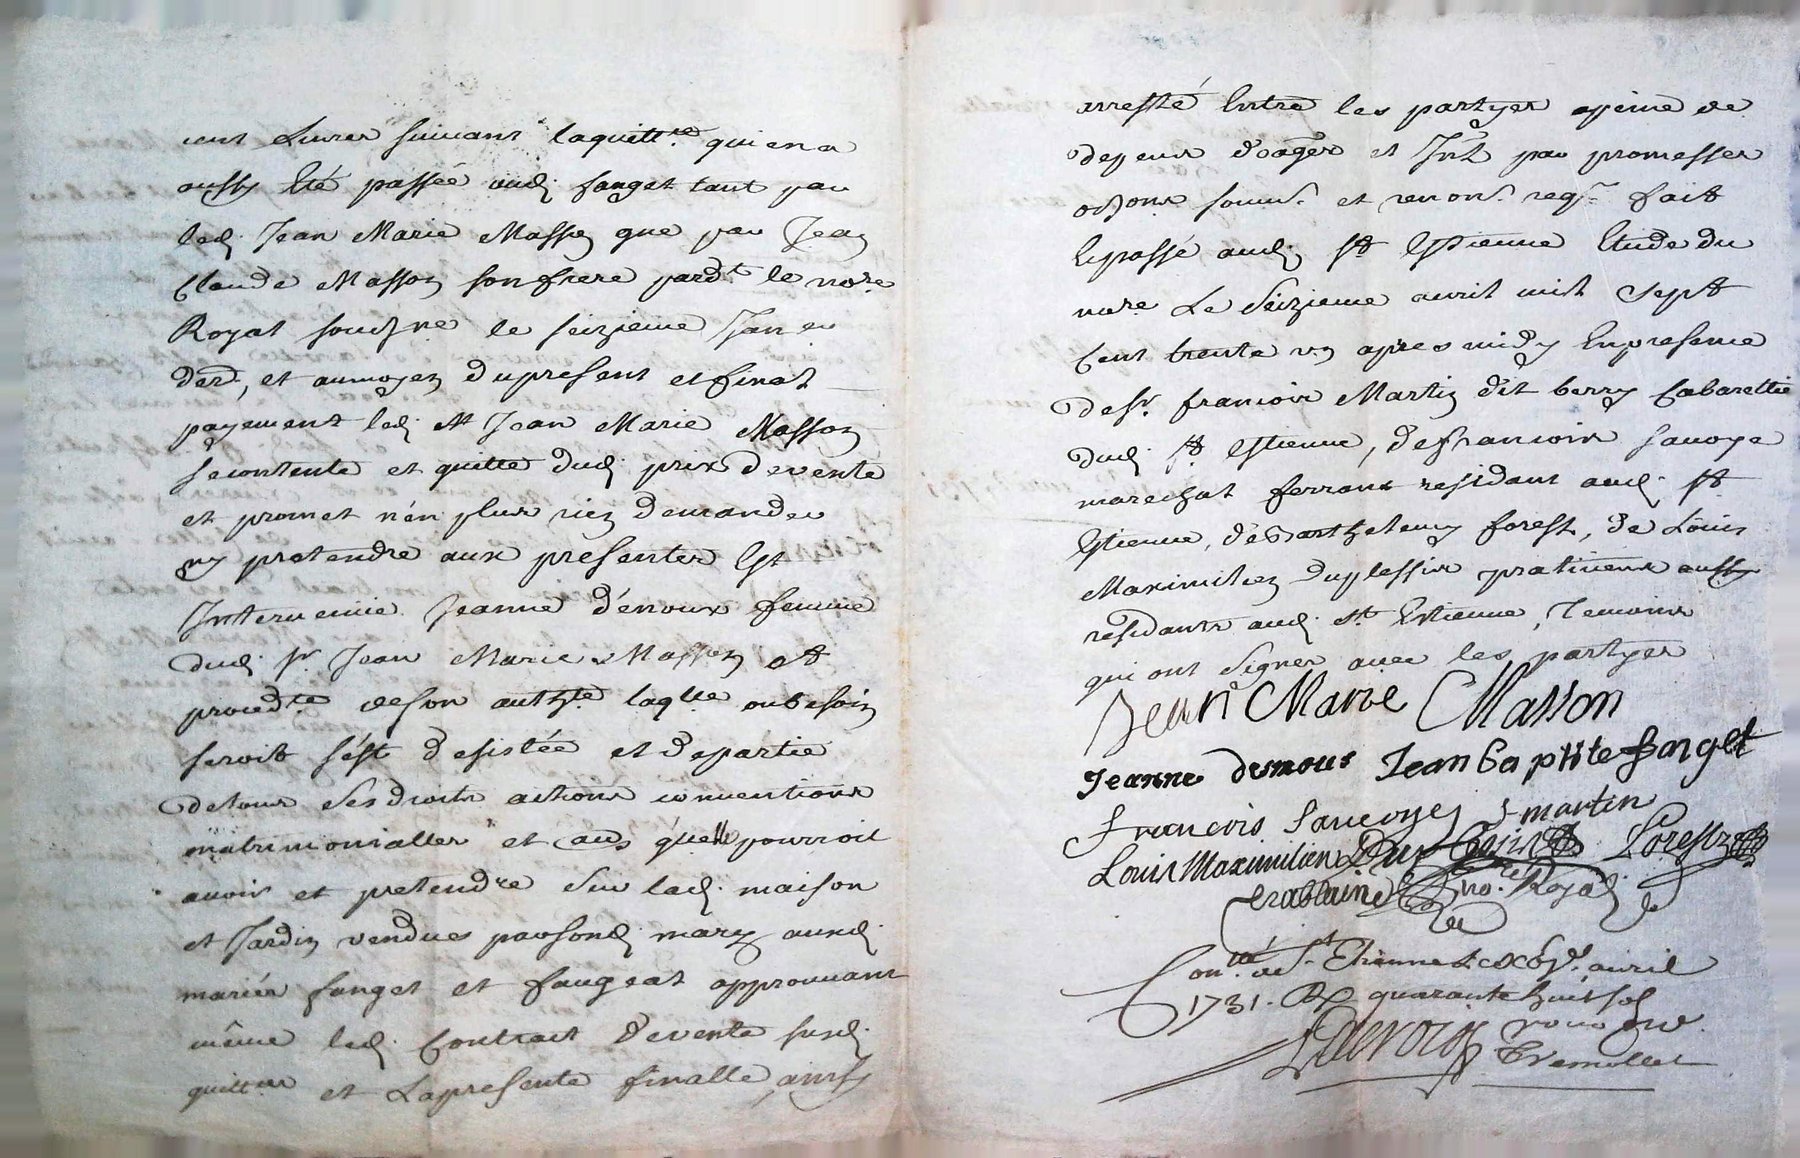 cent Livres suivant laquitt.ce qui en a
aussy Eté passée aud. fanget tant par
led. Jean Marie Masson que par Jean
Claude Masson son frere pard.t le no.re
Royal sousigne le seizieme Janer
der.r, et aumoyen dupresent et final
payement led. Sr Jean Marie Masson
se contente et quitte dud. prix de vente
et promet n'en plus rien demander
ny pretendre aux presentes Est
Intervenue Jeanne
dud. Sr. Jean Marie Masson et
proced.te de son auth.te laq.lle oubesoin
seroit s'est desistée et departie
detous ses droits actions conventions
matrimonialles et au.s qu'elle pourroit
avoir et pretendre sur lad. maison
et Jardin vendues par sond. mary auxd.
mariés fanget et faugeat approuvant
même led. Contract de vente susd.
quittce et Lapresente finalle, ainsy
arresté Entre les partyes apeine de
depens domages et Int. par promesses
soumis.n et renon.n req.s fait
Epassé aud. St Estienne Etude du
no.re Le Seizieme avril mil Sept
Cent trente un apres midy En presence
de Sr. francois Martin dit berry Cabarettier
dud. St Estienne, de francois sauvye
marechal ferrant residant aud. St
Estienne, de Barthelemy forest, de Louis
Maximilien Duplessis praticiens aussy
residants aud. St. Estienne, Temoins
qui ont Signer avec les partyes
Jean Marie Masson
Jeanne Jean baptiste fanget
francois martin
Louis Maximilien Duplessis forest
no.re Royal
Con.llé a St Etienne Le avril
1731. R quarante huit sols